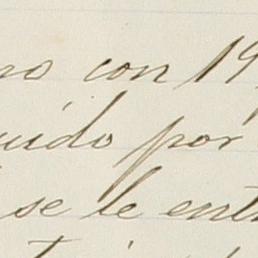 ro con 19
uido por
se le ent